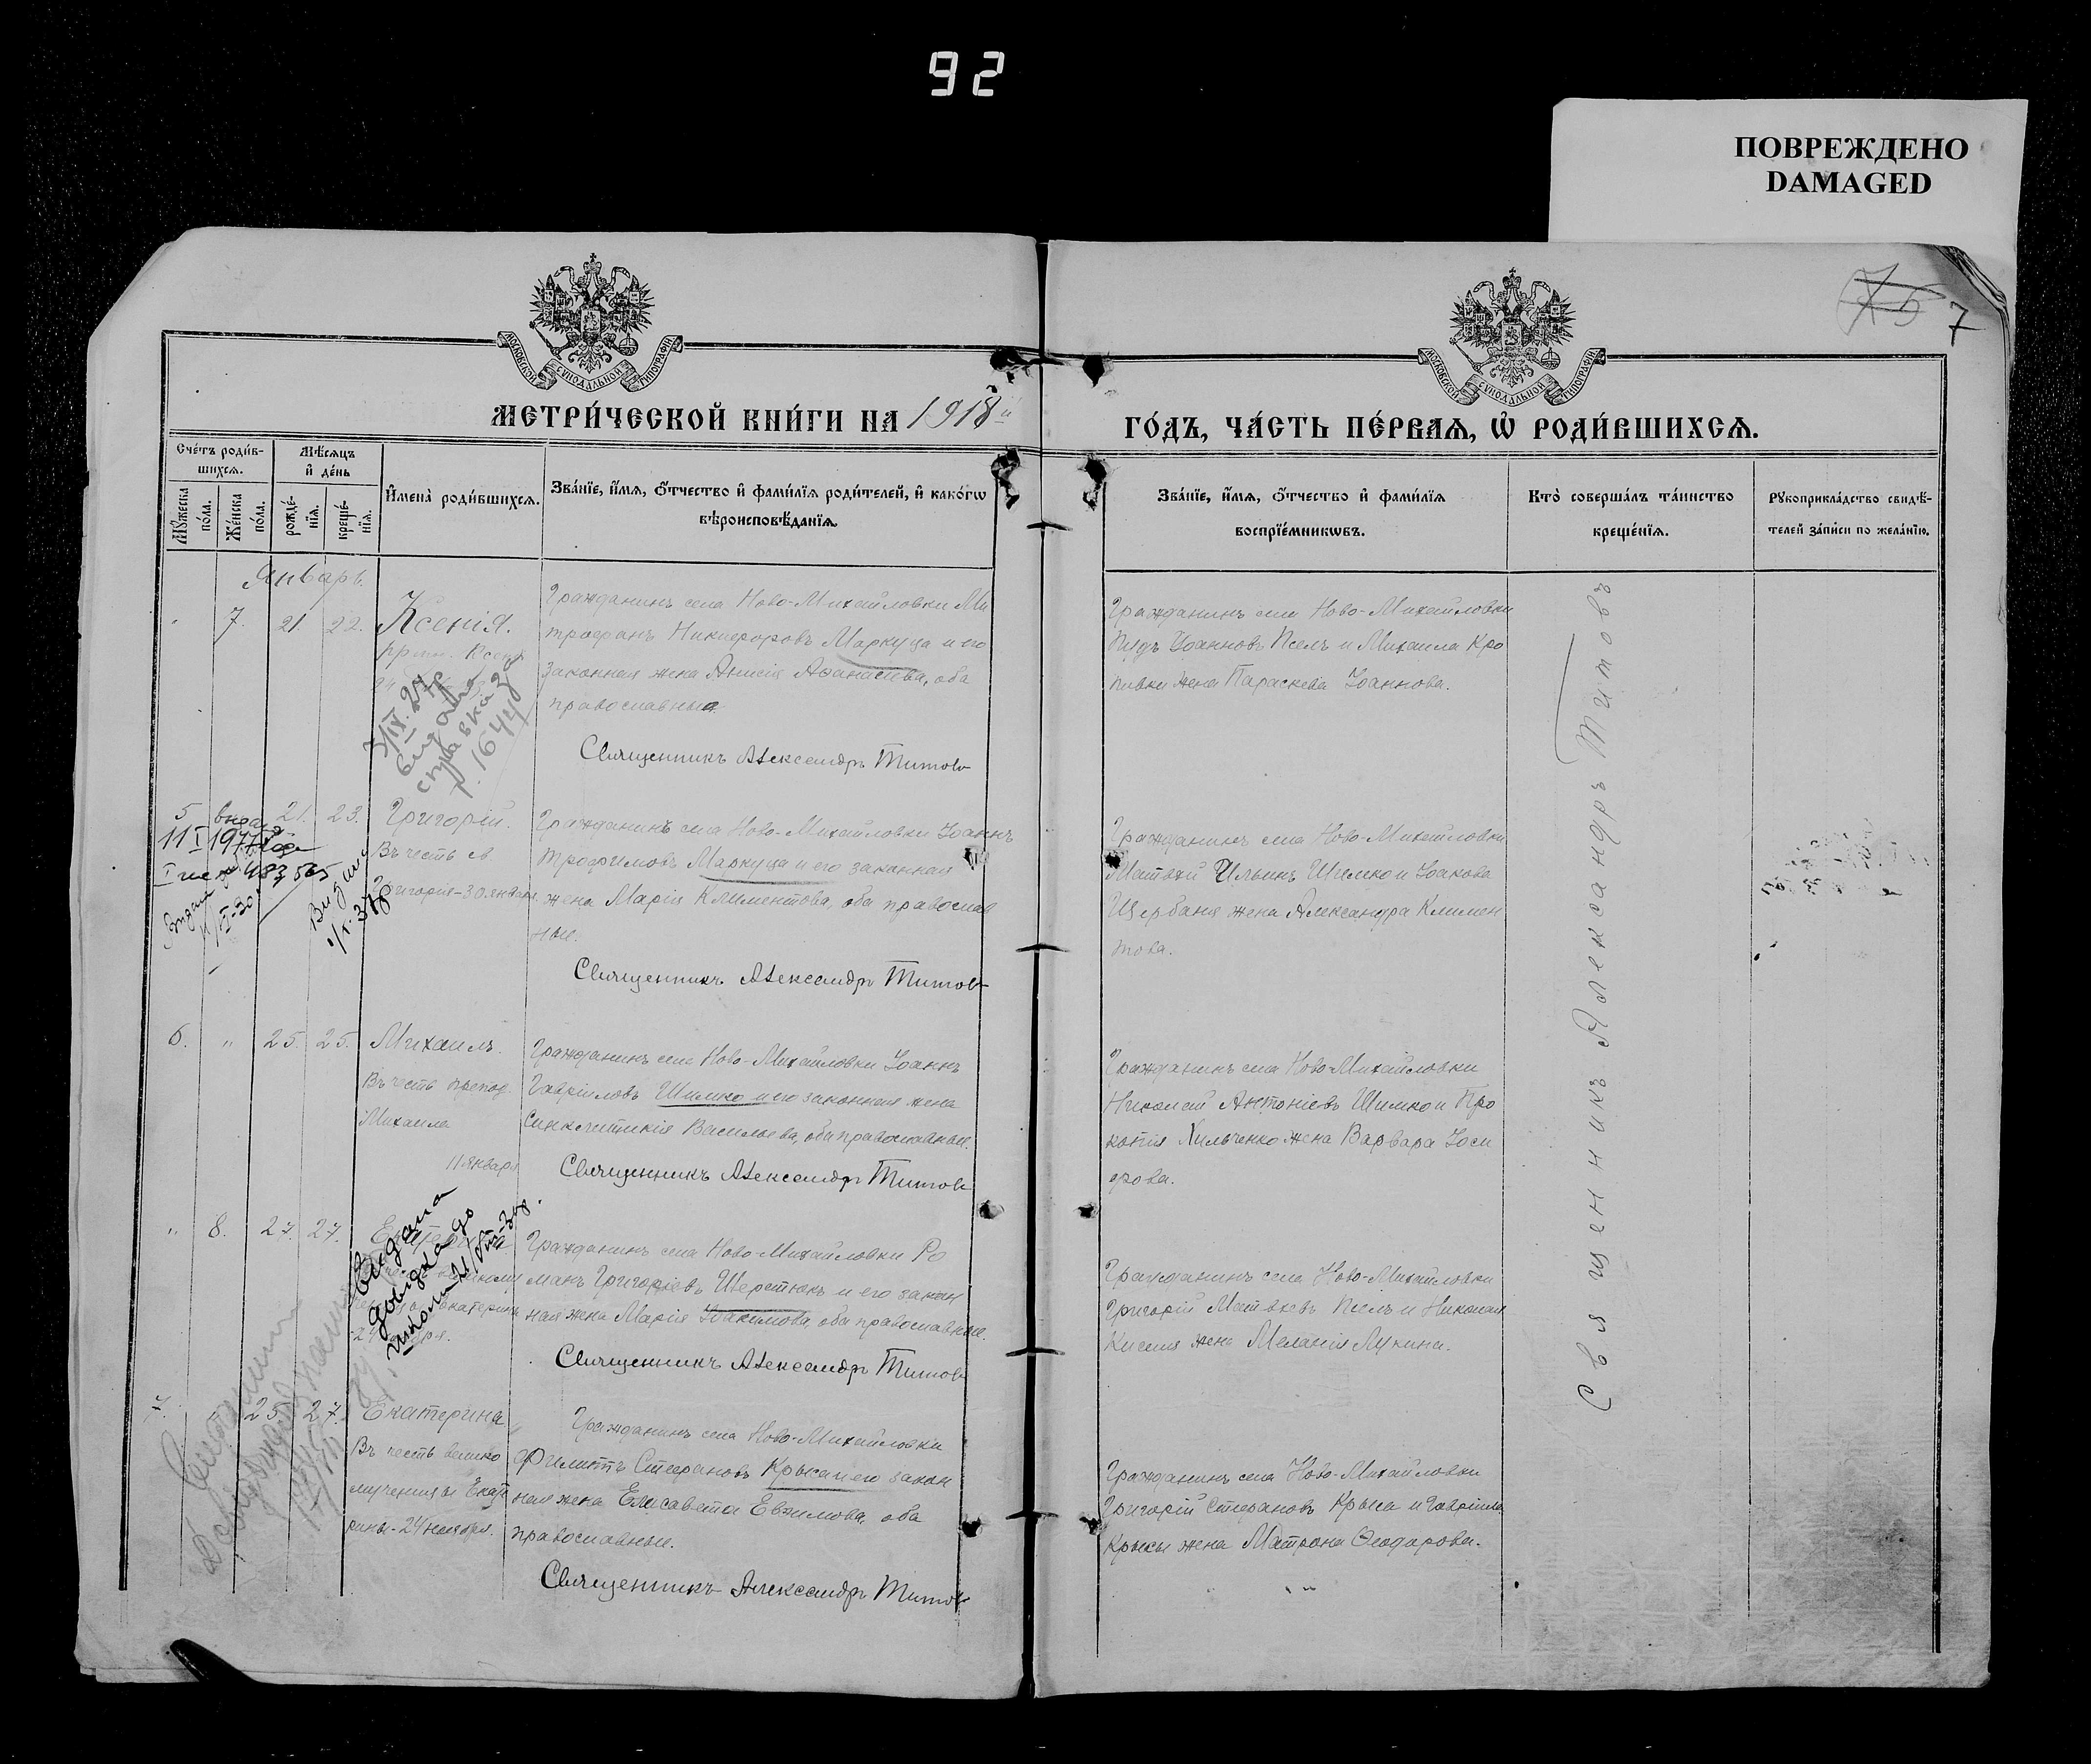 92
ПОВРЕЖДЕНО
DAMAGED
75 7
МОСКОВСКОЙ СѴНОДАЛЬНОЙ ТИПОГРАФІИ
МОСКОВСКОЙ СѴНОДАЛЬНОЙ ТИПОГРАФІИ
МЕТРИ́ЧЕСКОЙ КНИ́ГИ НА 1918 й
ГО́ДЪ, ЧА́СТЬ ПЕ́РВАѦ, Ѡ҆ РОДИ́ВШИХСѦ.
Сче́тъ роди́в-
шихсѧ.
Мѣ́сѧцъ
и҆ де́нь
Мꙋ́жеска по́ла.
Же́нска по́ла.
рожде́-
нїѧ.
креще́-
нїѧ.
И҆мена̀ роди́вшихсѧ.
Зва́нїе, и҆́мѧ, ѻ҆́тчество и҆ фами́лїѧ роди́телей, и҆ како́гѡ
вѣроисповѣ́данїѧ.
Зва́нїе, и҆́мѧ, ѻ҆́тчество и҆ фами́лїѧ
воспрїе́мникѡвъ.
Кто̀ соверша́лъ та́инство
креще́нїѧ.
Рꙋкоприкла́дство свидѣ́-
телей за́писи по жела́нїю.
Январь.
7. 21. 22. Ксенія.
Гражданинъ села Ново-Михайловки Ми
трофанъ Никифоровъ Маркуца и его
законная жена Анисія Афанасіева, оба
православные.
Священникъ Александръ Титовъ
3/IX. 27 р
видана
справка з
р. 1644
Гражданинъ села Ново-Михайловки
Іоанновъ Псёлъ и Михаила Кро
пивки жена Параскева Іоаннова.
5 21. 23. Григорій.
Въ честь св.
Григорія-30. января
11 I 1977
483565
Видано
Гражданинъ села Ново-Михайловки Іоаннъ
Трофимовъ Маркуца и его законная
жена Марія Климентова, оба православ
ные.
Священникъ Александръ Титовъ
Гражданинъ села Ново-Михайловки
Матвѣй Ильинъ Шимко и Іоакова
Щербаня жена Александра Климен
това.
6. " 25. 25. Михаилъ.
Въ честь препод.
Михаила
11 января
Гражданинъ села Ново-Михайловки Іоаннъ
Гавріиловъ Шимко и его законная жена
Синклитикія Васильева, оба православные.
Священникъ Александръ Титовъ
Гражданинъ села Ново-Михайловки
Николай Антоніевъ Шимко и Про
копія Хильченко жена Варвара Іоси
фова.
" 8. 27. 27.
Видана
довідка до
школи
Гражданинъ села Ново-Михайловки Ро
манъ Григоріевъ Шерстюкъ и его закон
ная жена Марія Іоакимова, оба православные.
Священникъ Александръ Титовъ
Гражданинъ села Ново-Михайловки
Григорій Матвѣевъ Псёлъ и Николая
Киселя жена Меланія Лукина.
7. 25 27. Екатерина
Въ честь велико
мученицы Екате
рины-24 ноября.
Гражданинъ села Ново-Михайловки
Филиппъ Стефановъ Крыса и его закон
ная жена Елисавета Евфимова, оба
православные.
Священникъ Александръ Титовъ
Гражданинъ села Ново-Михайловки
Григорій Стефановъ Крыса и Гавріила
Крысы жена Матрона Ѳеодорова.
Священникъ Александръ Титовъ